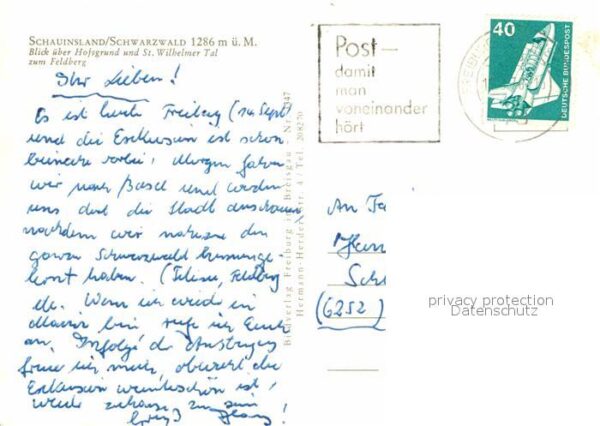 SCHAUINSLAND/SCHWARZWALD 1286 m ü. M.
Blick über Hofsgrund und St. Wilhelmer Tal
zum Feldberg
Ihr Lieben!
Es ist heute Freitag (14. Sept)
und die Exkursion ist schon
beinahe vorbei. Morgen fahren
wir nach Basel und werden
uns dort die Stadt anschauen,
nachdem wir nahezu den
ganzen Schwarzwald
haben. (Titisee, Feldberg
etc. Wenn ich wieder in
Mainz bin rufe ich Euch
an. Infolge der
freue ich mich, obwohl die
Exkursion wunderschön ist,
wieder zuhause zu sein
Gruß
Bildverlag Freiburg im Breisgau - Nr.
Hermann-Herder-Str. 4 / Tel. 208270
Post –
damit
man
voneinander
hört
40
DEUTSCHE BUNDESPOST
An Fa
(6252)
privacy protection
Datenschutz